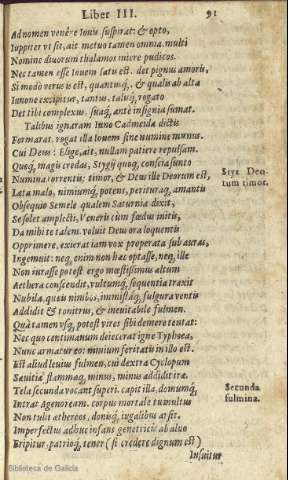 Liber III. 91
Ad nomen venêre Iouis suspirat: & opto,
Iuppiter vt sit, ait metuo tamen omnia. multi
Nomine diuorum thalamos iniere pudicos.
Nec tamen esse Iouem satis est. det pignus amoris,
Si modò verus is est, quantusq́, & qualis ab alta
Iunone excipitur, tantus, talisq́, rogato
Det tibi complexus. suaq́, antè insignia sumat.
Talibus ignaram Iuno Cadmeida dictis
Formarat. rogat illa Iouem sine nomine munus.
Cui Deus: Elige, ait, nullam patiere repulsam.
Quoq́, magis credas, Stygij quoq́, conscia sunto
Numina torrentis: timor, & Deus ille Deorum est,
Styx Deo-
tum timor.
Læta malo, nimiumq́, potens, perituraq́, amantis
Obsequio Semele qualem Saturnia dixit,
Se solet amplecti, Veneris cùm fœdus initis,
Da mihi te talem. voluit Deus ora loquentis
Opprimere, exierat iam vox properata sub auras,
Ingemuit: neq, enim non hæc optasse, neq, ille
Non iurasse potest ergo mœstissimus altum
Aethera conscendit, vultumq́, sequentia traxit
Nubila, queis nimbos, immistaq́, fulgura ventis
Addidit & tonitrus, & ineuitabile fulmen.
Quà tamen vsq́, potest vires sibi demere tentat:
Nec quo centimanum deiecerat igne Typhoea,
Nunc armatur eo: nimium feritatis in illo est.
Est aliud leuius fulmen, cui dextra Cyclopum
Sæuitiæ flammæq́, minus, minus addidit iræ.
Tela secunda vocant superi. capit illa, domumq́,
Secunda
fulmina.
Intrat Agenoream. corpus mortale tumultus
Non tulit æthereos, donisq́, iugalibus arsit.
Imperfectus adhuc infans genetricis ab aluo
Eripitur, patrioq́, tener (si credere dignum est)
Insuitur
Biblioteca de Galicia